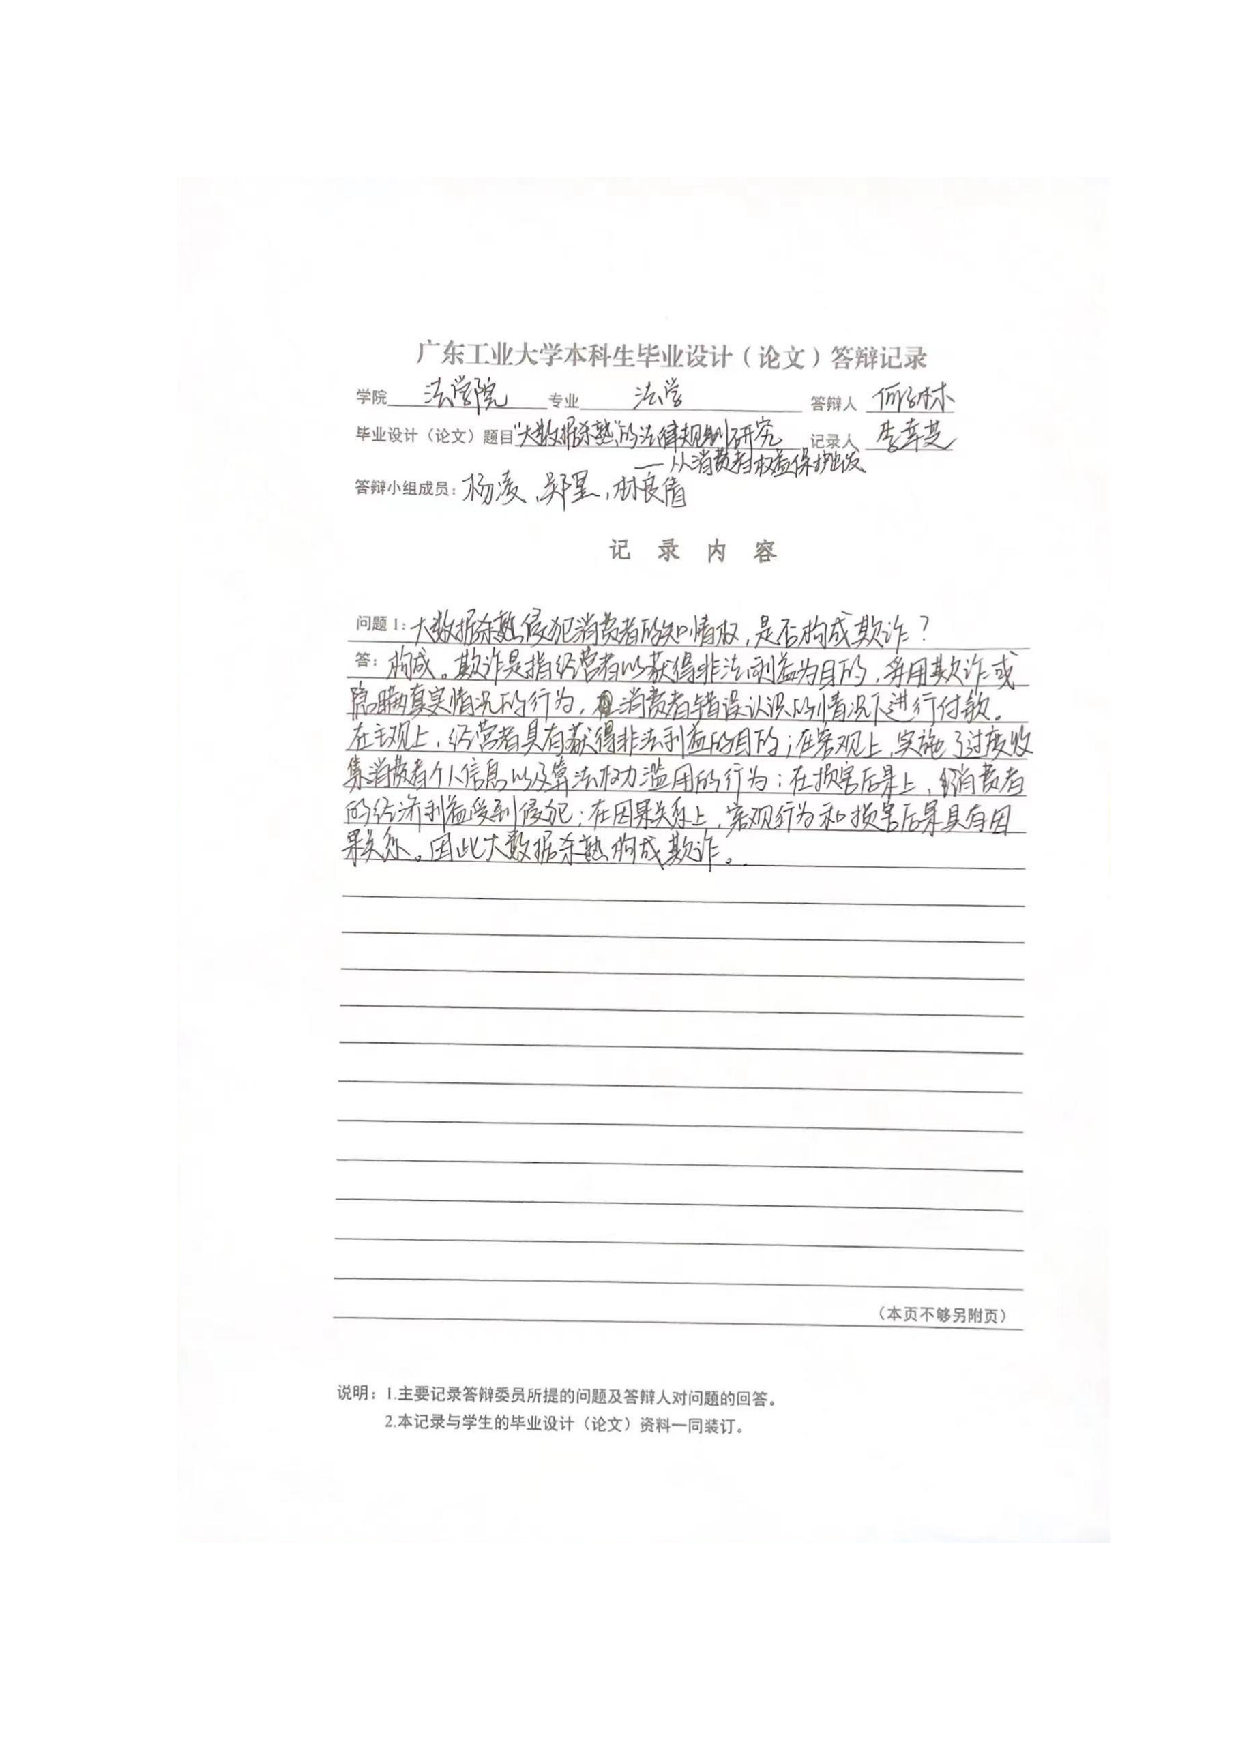 广东工业大学本科生毕业设计（论文）答辩记录
学院 法学院 专业 法学 答辩人 何子林
毕业设计（论文）题目 "大数据杀熟"的法律规制研究 记录人 李幸芝
——从消费者权益保护出发
答辩小组成员：杨凌、郑里、林良倩
记 录 内 容
问题 1：大数据杀熟侵犯消费者的知情权，是否构成欺诈？
答：构成。欺诈是指经营者以获得非法利益为目的，采用欺诈或
隐瞒真实情况的行为，消费者错误认识的情况下进行付款。
在主观上，经营者具有获得非法利益的目的；在客观上，实施了过度收
集消费者个人信息以及算法权力滥用的行为；在损害后果上，消费者
的经济利益受到侵犯；在因果关系上，客观行为和损害后果具有因
果关系。因此大数据杀熟构成欺诈。
（本页不够另附页）
说明：1.主要记录答辩委员所提的问题及答辩人对问题的回答。
2.本记录与学生的毕业设计（论文）资料一同装订。